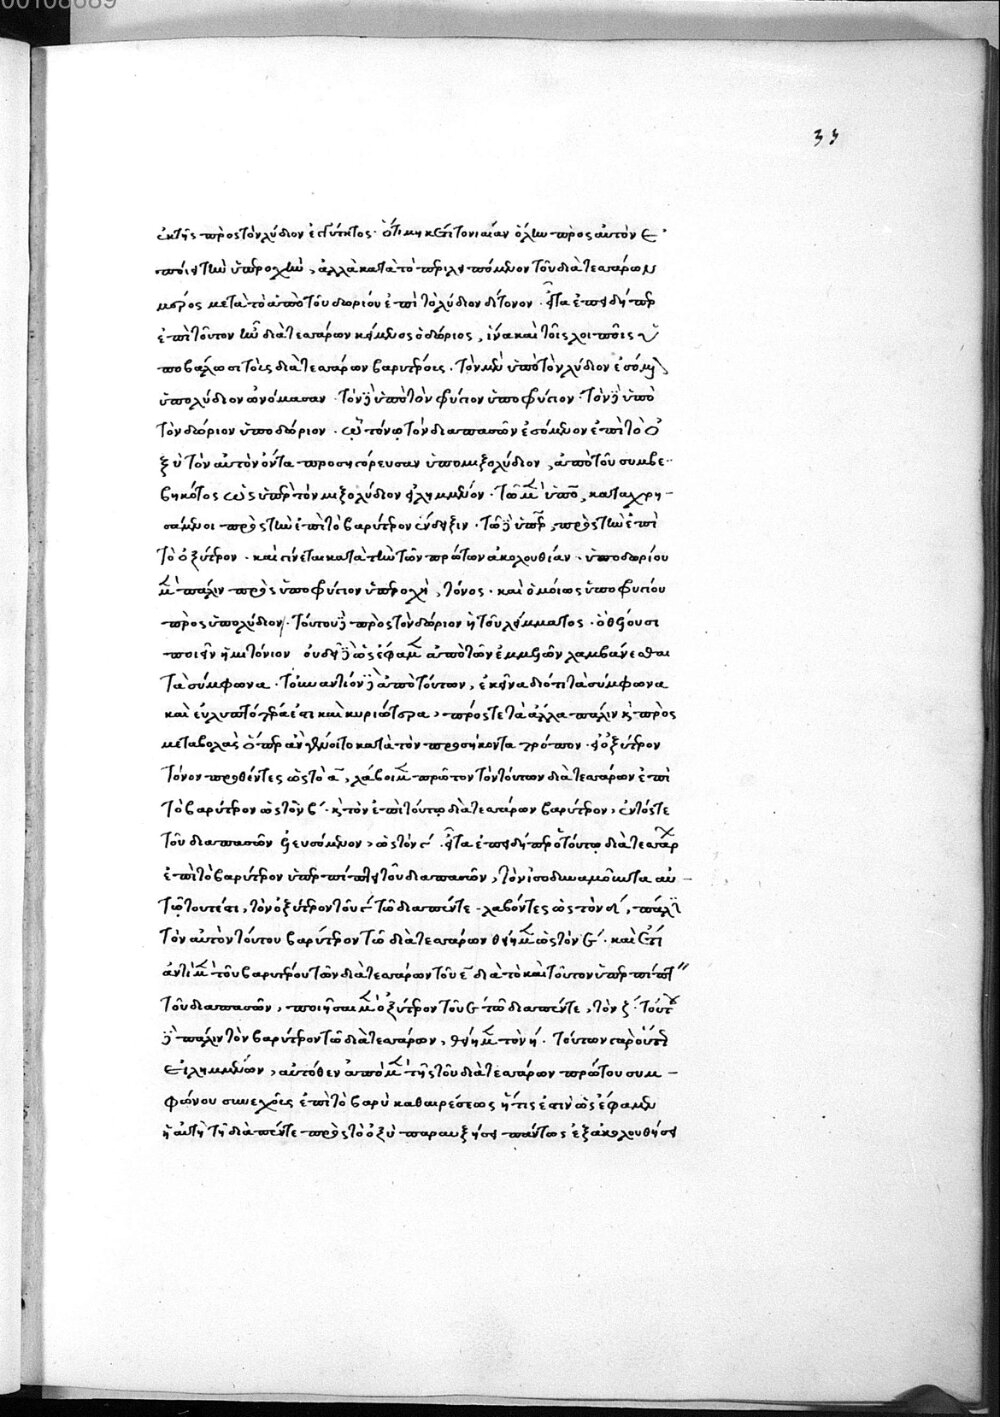 00108689
33
ἐκ τῆς πρὸς τὸν λύδιον ἐστύτητος. ὅτι μηκέτι τονιαίαν ὅλην πρὸς αὐτὸν ἐ
ποίει τὴν ὑπεροχὴν, ἀλλὰ κατὰ τὸ περιλειπόμενον τοῦ διὰ τεσσάρων
μέρος μετὰ τὸ ἀπὸ τοῦ δωρίου ἐπὶ τὸ λύδιον δίτονον. εἶτα ἐπειδήπερ
ἐπὶ τοῦτον ἦν διὰ τεσσάρων κείμενος ὁ δώριος, ἵνα καὶ τοῖς λοιποῖς ὑ
ποβάλωσι τοὺς διὰ τεσσάρων βαρυτέρους. τὸν μὲν ὑπὸ τὸν λύδιον ἐσόμενον
ὑπολύδιον ὠνόμασαν. τὸν δὲ ὑπὸ τὸν φύγιον ὑποφύγιον. τὸν δὲ ὑπὸ
τὸν δώριον ὑποδώριον. ᾧ τόνῳ τὸν διαπασῶν ἐσόμενον ἐπὶ τὸ ὀ
ξὺ τὸν αὐτὸν ὄντα προσηγόρευσαν ὑπομιξολύδιον, ἀπὸ τοῦ συμβε
βηκότος ὡς ὑπὲρ τὸν μιξολύδιον εἰλημμένον. τῷ μὲν ὑπὸ, καταχρη-
σάμενοι πρὸς τὴν ἐπὶ τὸ βαρύτερον ἔνδειξιν. τῷ δὲ ὑπὲρ, πρὸς τὴν ἐπὶ
τὸ ὀξύτερον. καὶ γίνεται κατὰ τὴν τῶν πρώτων ἀκολουθίαν. ὑποδωρίου
μὲν πάλιν πρὸς ὑποφύγιον ὑπεροχὴ, τόνος. καὶ ὁμοίως ὑποφυγίου
πρὸς ὑπολύδιον. τούτου δὲ πρὸς τὸν δώριον ἡ τοῦ λείμματος. ὃ θέουσι
ποιεῖν ἡμιτόνιον οὐ δεῖ δὲ ὡς ἔφαμεν ἀπὸ τῶν ἐμμελῶν λαμβάνεσθαι
τὰ σύμφωνα. τοὐναντίον δὲ ἀπὸ τούτων, ἐκεῖνα διότι τὰ σύμφωνα
καὶ εὐληπτότερά ἐστι καὶ κυριώτερα, πρός τε τὰ ἄλλα πάλιν καὶ πρὸς
μεταβολὰς ὅπερ ἂν γένοιτο κατὰ τὸν προσήκοντα τρόπον. εἰ ὀξύτερον
τόνον προθέντες ὡς τὸ α, λάβοιμεν πρῶτον τὸν τούτων διὰ τεσσάρων ἐπὶ
τὸ βαρύτερον ὡς τὸν β. καὶ τὸν ἐπὶ τούτῳ διὰ τεσσάρων βαρύτερον, ἐντός τε
τοῦ διαπασῶν εὑρισόμενον, ὡς τὸν γ. εἶτα ἐπειδήπερ ὁ τούτῳ διὰ τεσσάρ
ἐπὶ τὸ βαρύτερον ὑπερπίπτει τοῦ διαπασῶν, τὸν ἰσοδυναμοῦντα αὐ-
τῷ τουτέστι, τὸν ὀξύτερον τοῦ γ τῷ διαπέντε λαβόντες ὡς τὸν δ, πάλιν
τὸν αὐτὸν τούτου βαρύτερον τῷ διὰ τεσσάρων θείημεν ὡς τὸν ε. καὶ ἔτι
ἀντὶ μὲν τοῦ βαρυτέρου τῷ διὰ τεσσάρων τοῦ ε διὰ τὸ καὶ τοῦτον ὑπερπίπτειν
τοῦ διαπασῶν, ποιήσαιμεν ὀξύτερον τοῦ ε τῷ διαπέντε, τὸν ζ. τούτου
δὲ πάλιν τὸν βαρύτερον τῷ διὰ τεσσάρων, θείημεν τὸν η. τούτων γὰρ οὕτω
εἰλημμένων, αὐτόθεν ἀπὸ μὲν τῆς τοῦ διὰ τεσσάρων πρώτου συμ-
φώνου συνεχοῦς ἐπὶ τὸ βαρὺ καθαιρέσεως ἥτις ἐστὶν ὡς ἔφαμεν
ἡ αὐτὴ τῇ διὰ πέντε πρὸς τὸ ὀξὺ παραυξήσει πάντως ἐξακολουθήσει